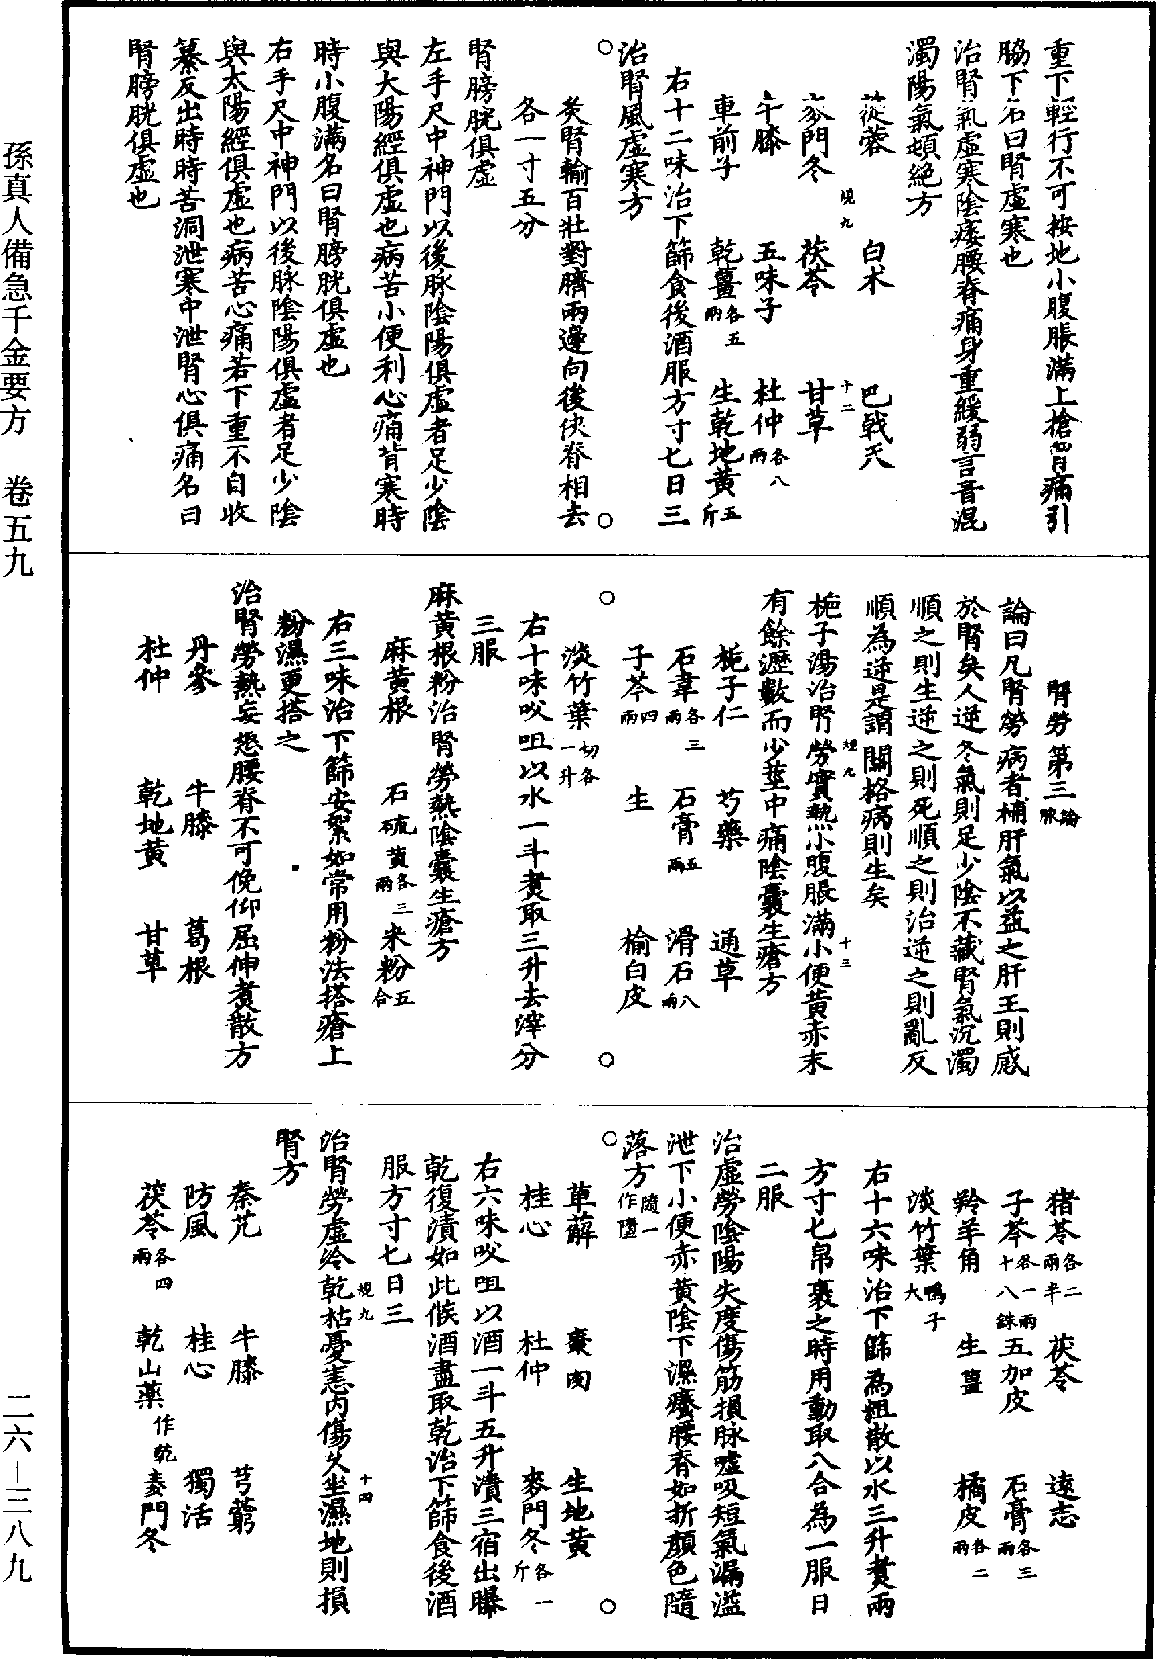 重下輕行不可按地小腹脹滿上搶胷痛引
脇下名曰腎虛寒也
治腎氣虛寒陰痿腰脊痛身重緩弱言音混
濁陽氣頓絕方
蓯蓉 白术 巴戟天
麥門冬 茯苓 甘草
牛膝 五味子 杜仲各八兩
車前子 乾薑各五兩 生乾地黃五斤
右十二味治下篩食後酒服方寸匕日三
治腎風虛寒方
灸腎輸百壯對臍兩邊向後俠脊相去
各一寸五分
腎膀胱俱虛
左手尺中神門以後脉陰陽俱虛者足少陰
與大陽經俱虛也病苦小便利心痛背寒時
時小腹滿名曰腎膀胱俱虛也
右手尺中神門以後脉陰陽俱虛者足少陰
與太陽經俱虛也病苦心痛若下重不自收
篡反出時時苦洞泄寒中泄腎心俱痛名曰
腎膀胱俱虛也
腎勞第三論脉
論曰凡腎勞病者補肝氣以益之肝王則感
於腎矣人逆冬氣則足少陰不藏腎氣沉濁
順之則生逆之則死順之則治逆之則亂反
順為逆是謂關格病則生矣
梔子湯治腎勞實熱小腹脹滿小便黃赤末
有餘瀝數而少莖中痛陰囊生瘡方
梔子仁 芍藥 通草
石韋各三兩 石膏五兩 滑石八兩
子芩四兩 生 榆白皮
淡竹葉切各一升
右十味㕮咀以水一斗煑取三升去滓分
三服
麻黃根粉治腎勞熱陰囊生瘡方
麻黃根 石硫黃各三兩 米粉五合
右三味治下篩安絮如常用粉法搭瘡上
粉濕更搭之
治腎勞熱妄怒腰脊不可俛仰屈伸煑散方
丹參 牛膝 葛根
杜仲 乾地黃 甘草
猪苓各二兩半 茯苓 遠志
子芩各一兩十八銖 五加皮 石膏各三兩
羚羊角 生薑 橘皮各二兩
淡竹葉鴨子大
右十六味治下篩為粗散以水三升煑兩
方寸匕帛裹之時用動取八合為一服日
二服
治虛勞陰陽失度傷筋損脉噓吸短氣漏溢
泄下小便赤黃陰下濕癢腰脊如折顏色隨
落方隨一作墮
萆薢 棗肉 生地黃
桂心 杜仲 麥門冬各一斤
右六味㕮咀以酒一斗五升漬三宿出曝
乾復漬如此候酒盡取乾治下篩食後酒
服方寸匕日三
治腎勞虛冷乾枯憂恚內傷久坐濕地則損
腎方
秦艽 牛膝 芎藭
防風 桂心 獨活
茯苓各四兩 乾山藥作乾 麥門冬
孫真人備急千金要方 卷五九
二六—三八九